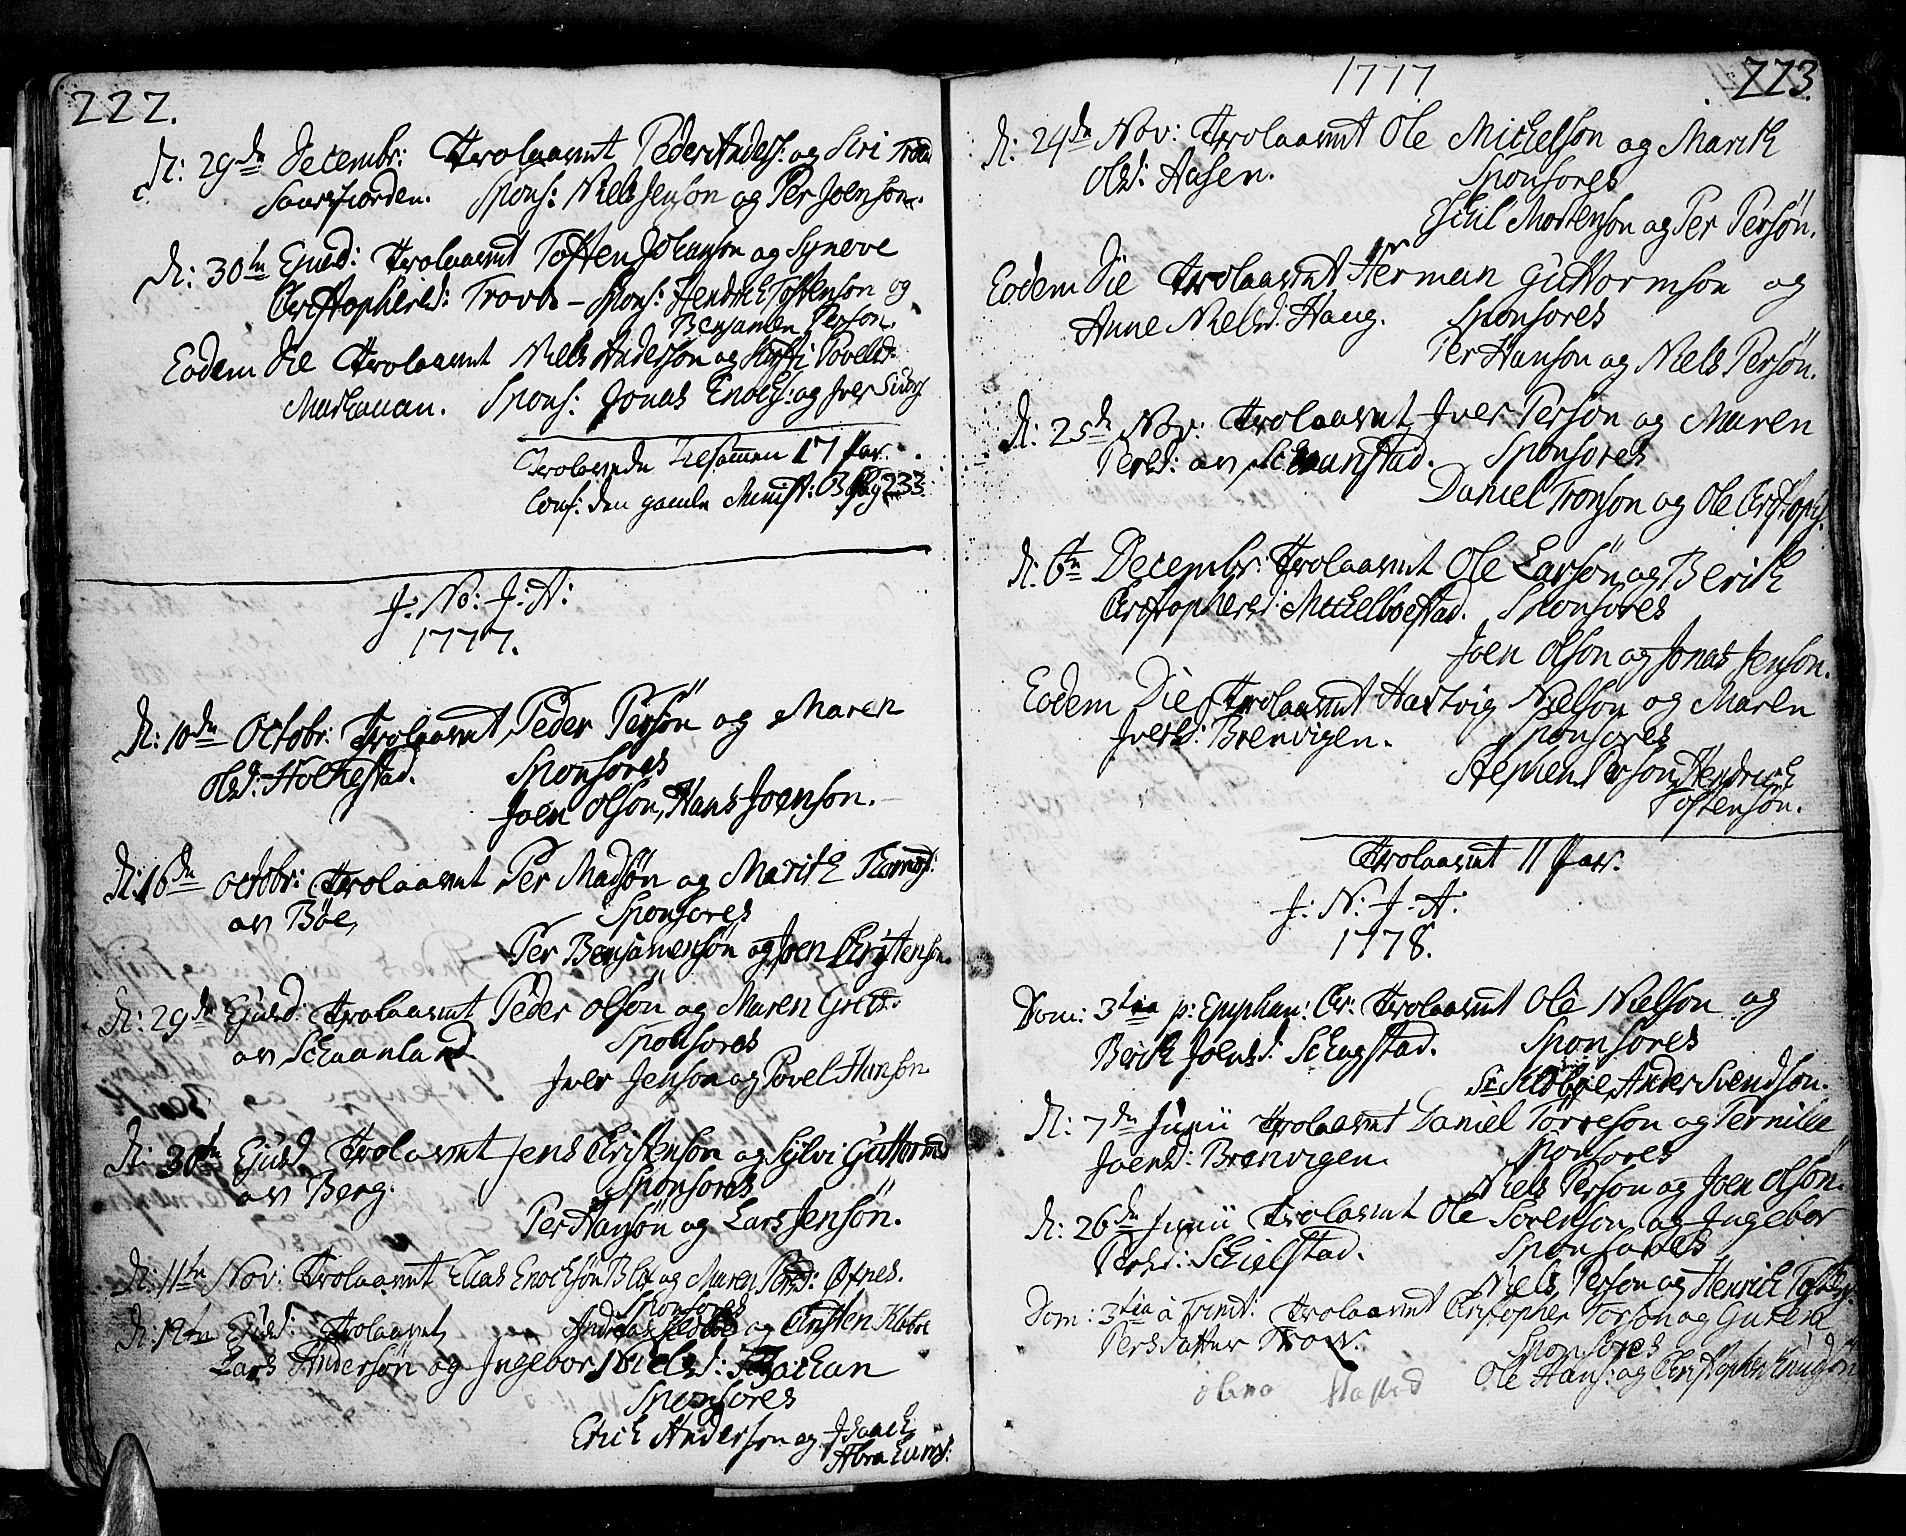 222.
d: 29de Decembr: Trolaavet Peder Anderss: og Siri
Saursfiorden. Spons: Niels Jenson og Per Joenson.
d: 30te Ejusd: Trolaavet Tosten Johanson og Synove
Christophersd: Trovb Spons: Hendrick Tostenson og
Benjamen Person.
Eodem Die Trolaavet Niels Anderson og Kirsti Povelsd:
Markauan. Spons: Jonas Enochs: og Iver Siurs
Trolovede Tilsammen 17 Par.
Conf: den gamle Minist: B: pag 233
J: No: J: A:
1777.
d: 10de Octobr: Trolaavet Peder Persøn og Maren
Olsd: Holkestad. Sponsores
Joen Olson, Hans Joenson.
d: 16de Octobr: Trolaavet Per Madsøn og Marith Thomasd:
av Bøe, Sponsores
Per Benjamensøn og Joen Christenson.
d: 29de Ejusd: Trolaavet Peder Olsøn og Maren
av Schaanland Sponsores
Iver Jenson og Povel Hanson
d: 30te Ejusd Trolaavet Jens Christenson og Sylvi Guttormsd
av Berg. Sponsores
Per Hansøn og Lars Jensøn.
d: 11te Nov: Trolaavet Elias Enochsøn Blix og Maren Persd: Øfnes.
Sponsores
d: 12te Ejusd: Trolaavet Andreas og Christen
Lars Andersøn og Ingebor Nielsd: Markan
Sponsores
Erich Anderson og Isaack
Abrahams:
1777 223.
d: 24de Nov: Trolaavet Ole Michelson og Marith
Olsd: Aasen. Sponsores
Eschil Mortenson og Per Persøn.
Eodem Die Trolaavet Herman Guttormson og
Anne Nielsd: Haug. Sponsores
Per Hanson og Niels Persøn.
d: 25de Nov: Trolaavet Iver Person og Maren
Persd: av Schaanstad. Sponsores
Daniel Tronson og Ole Christophs.
d: 6te Decembr: Trolaavet Ole Larsøn og Berith
Christophersd: Michelboestad. Sponsores
Joen Olson og Jonas Jenson.
Eodem Die Trolaavet Hartvig Nielson og Maren
Iversd: Brenvigen. Sponsores
Stephen Person Hendrich
Tostensøn.
Trolaavet 11 Par.
J: N: J: A:
1778.
Dom: 3tia p: Epiphan: Chr: Trolaavet Ole Nielson og
Berith Joensd: Schagstad. Sponsores
Sr Anders Svendson.
d: 7de Junii Trolaavet Daniel Torreson og Pernille
Joensd: Brenvigen. Sponsores
Niels Person og Joen Olsøn.
d: 26de Junii Trolaavet Ole Sørenson og Ingebor
Persd: Schielstad. Sponsores
Niels Person og Henrich
Dom: 3tia a Trinit: Trolaavet Christopher Torson og
Persdatter Trovr. Sponsores
Ole Hans: og Christopher